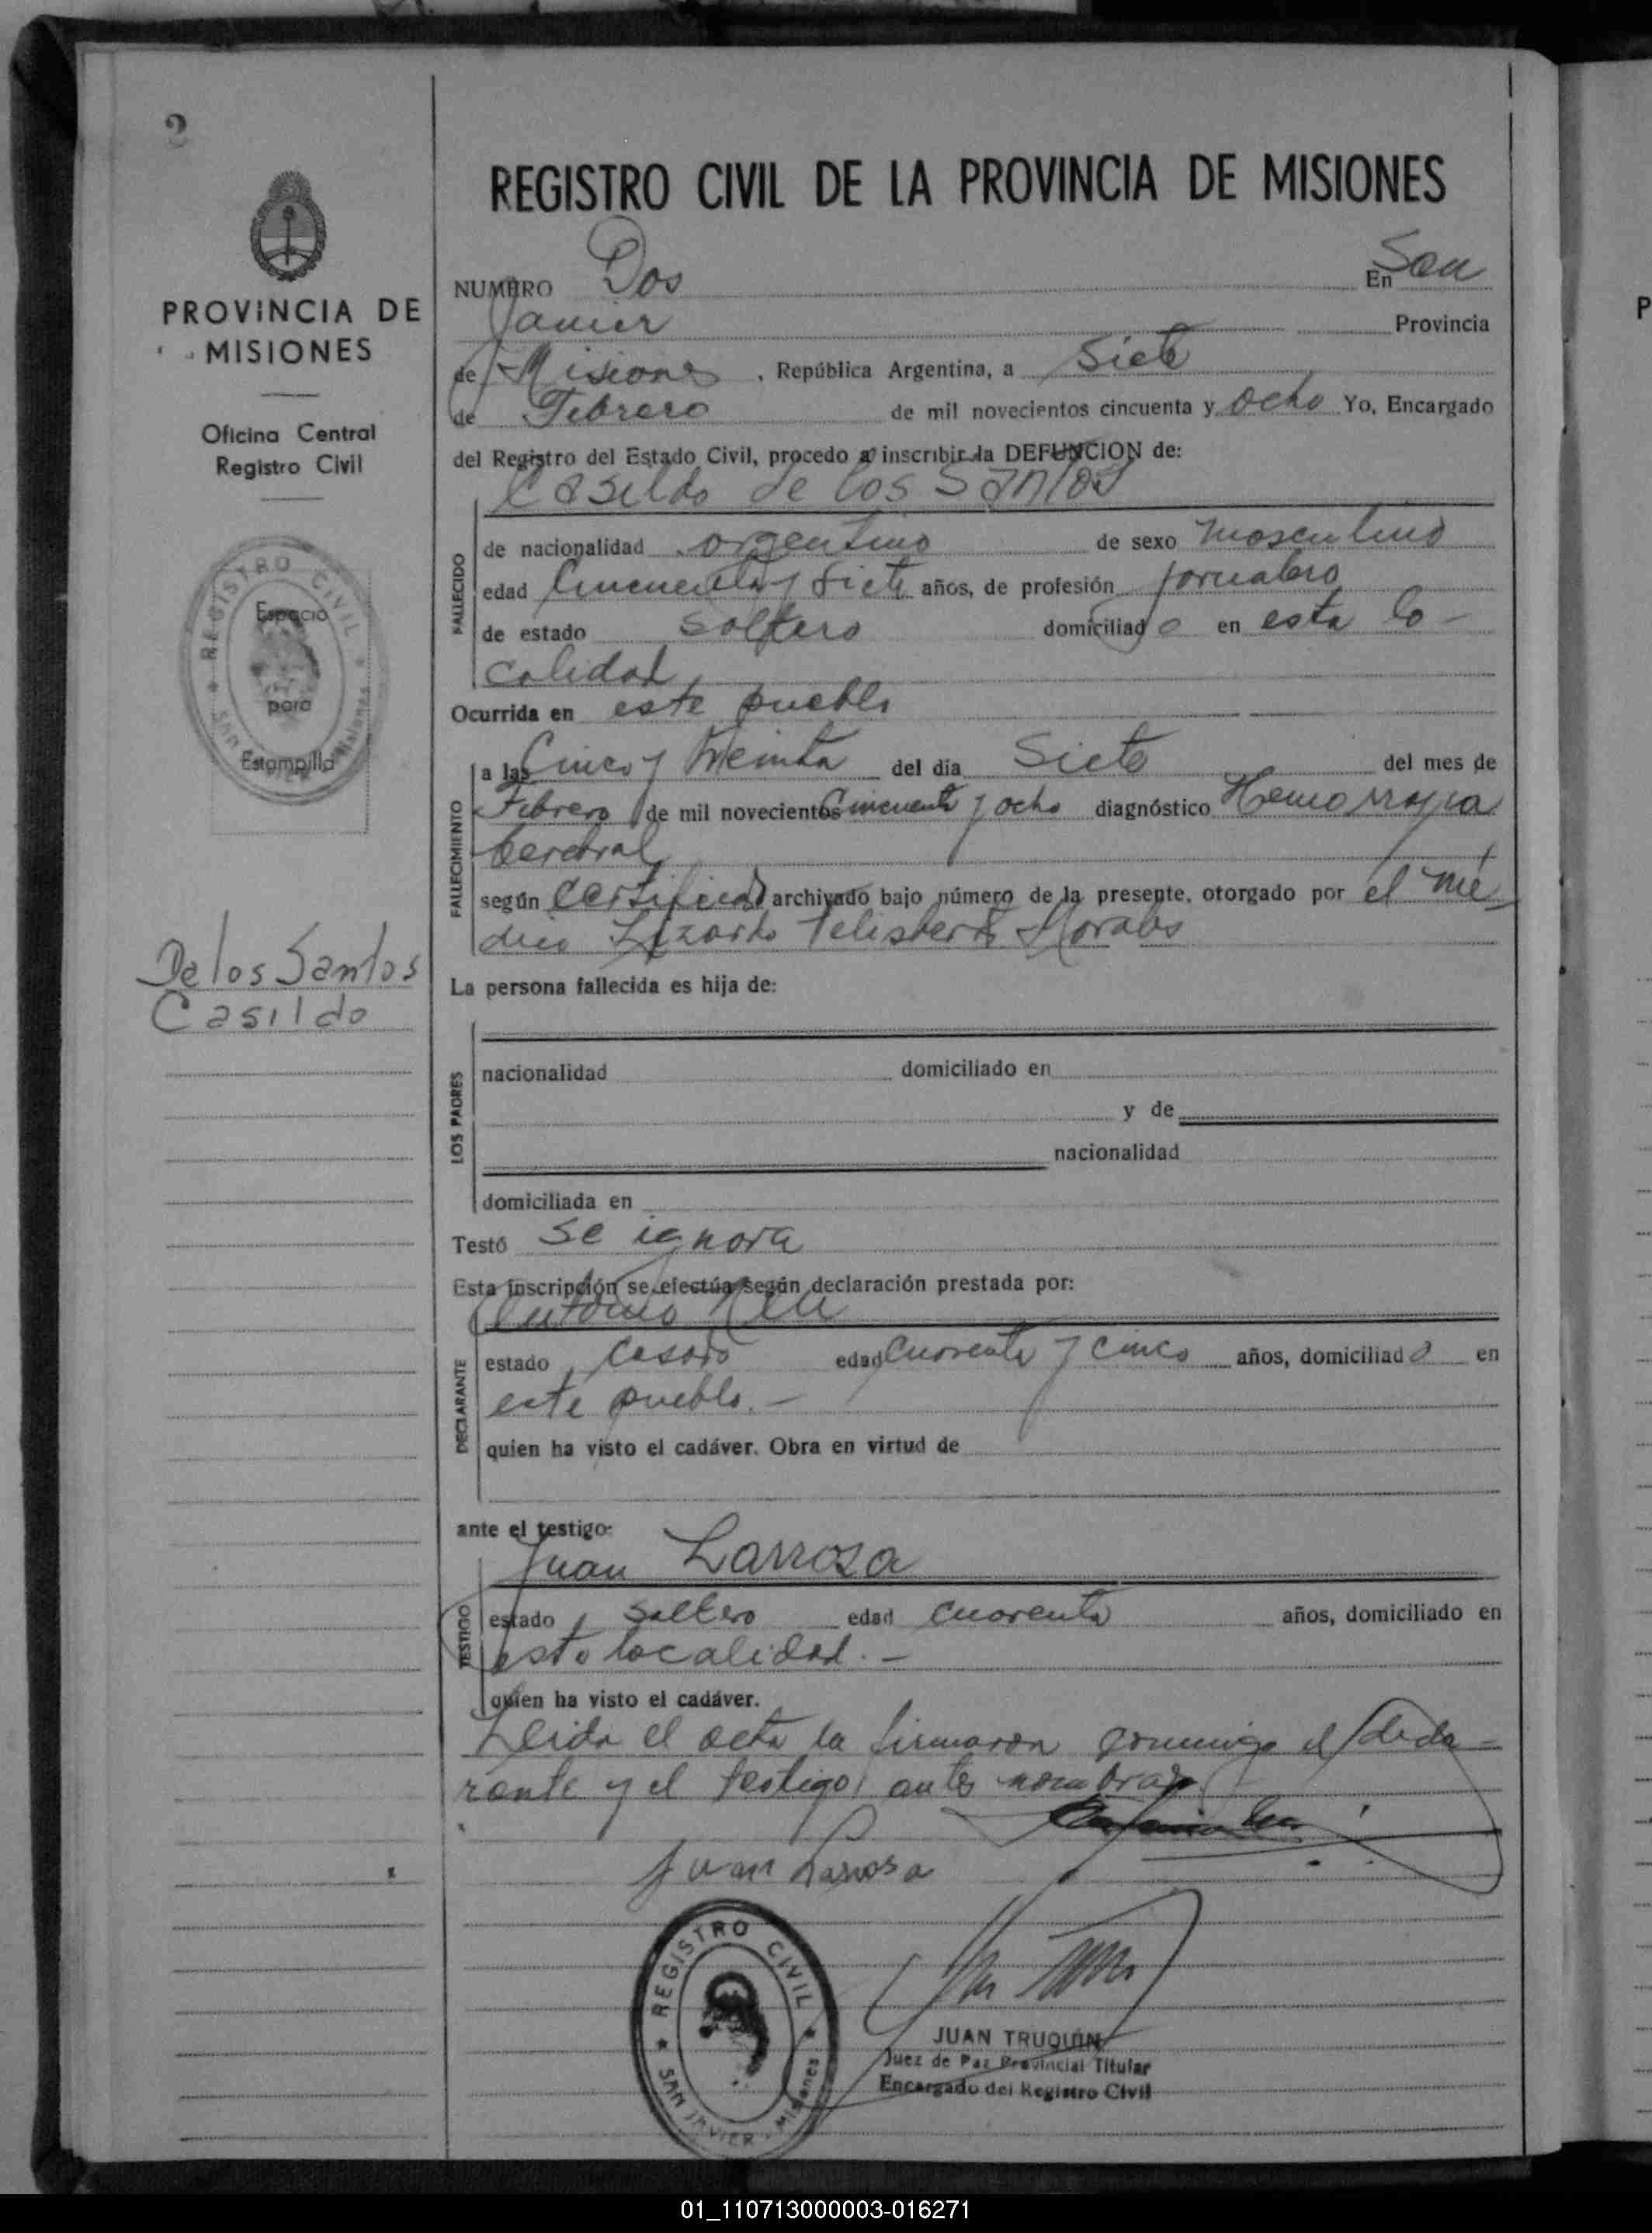 2
REGISTRO CIVIL DE LA PROVINCIA DE MISIONES
PROVINCIA DE
MISIONES
Oficina Central
Registro Civil
REGISTRO CIVIL
SAN Misiones
Espacio
para
Estampilla
De los Santos
Casildo
NUMERO Dos En San
Javier Provincia
de Misiones, República Argentina, a Siete
de Febrero de mil novecientos cincuenta y ocho Yo, Encargado
del Registro del Estado Civil, procedo a inscribir la DEFUNCION de:
Casildo de los Santos
FALLECIDO
de nacionalidad argentino de sexo masculino
edad Cincuenta y Siete años, de profesión jornalero
de estado soltero domiciliado en esta lo-
calidad
Ocurrida en este pueblo
FALLECIMIENTO
a las Cinco y treinta del día Siete del mes de
Febrero de mil novecientos cincuenta y ocho diagnóstico Hemorragia
según certificado archivado bajo número de la presente, otorgado por el mé-
dico Lizardo Felisberto Morales
La persona fallecida es hija de:
LOS PADRES
nacionalidad domiciliado en
y de
nacionalidad
domiciliada en
Testó se ignora
Esta inscripción se efectúa según declaración prestada por:
Antonio
DECLARANTE
estado casado edad cuarenta y cinco años, domiciliado en
este pueblo.-
quien ha visto el cadáver. Obra en virtud de
ante el testigo:
Juan Larrosa
TESTIGO
estado soltero edad cuarenta años, domiciliado en
esta localidad.-
quien ha visto el cadáver.
Leida el acta la firmaron conmigo el decla-
rante y el testigo antes nombrado
Juan Larrosa
REGISTRO CIVIL
SAN JAVIER - Misiones
JUAN TRUQUIN
Juez de Paz Provincial Titular
Encargado del Registro Civil
P
01_110713000003-016271